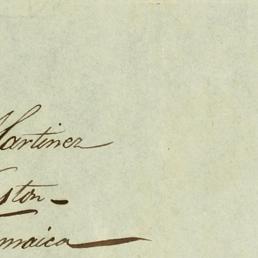 Martinez
ston
maica